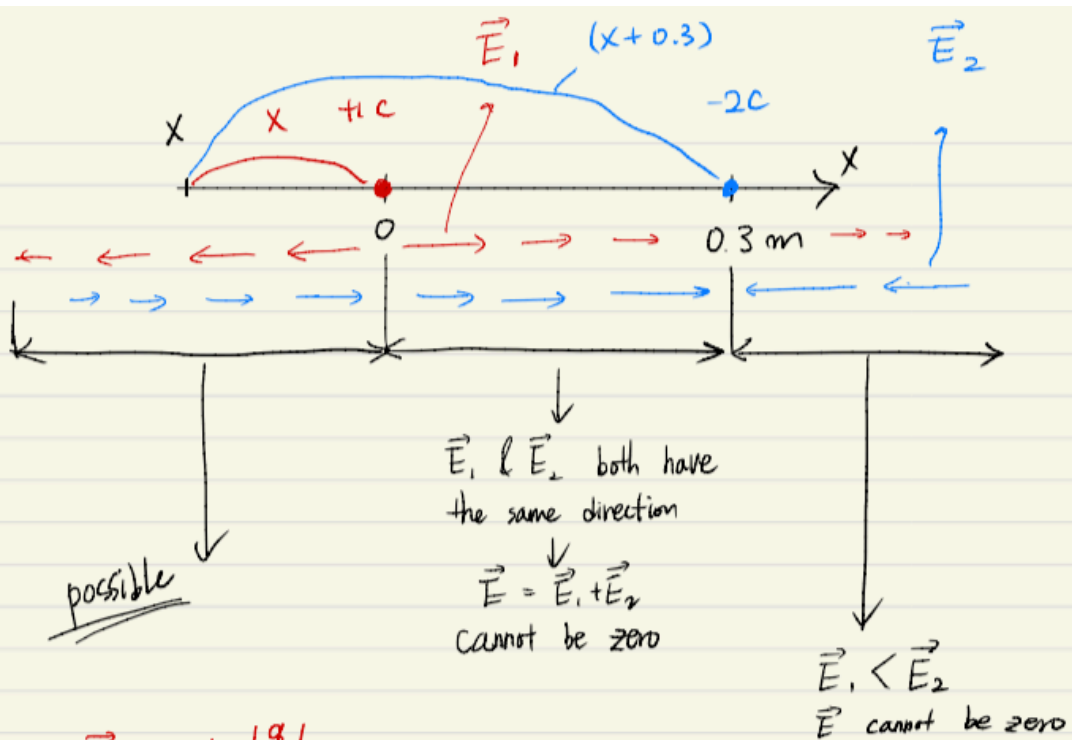 E⃗₁ (x+0.3) E⃗₂
x x +1 C -2C x
0 0.3 m
possible
E⃗₁ & E⃗₂ both have
the same direction
E⃗ = E⃗₁ + E⃗₂
cannot be zero
E⃗₁ < E⃗₂
E⃗ cannot be zero